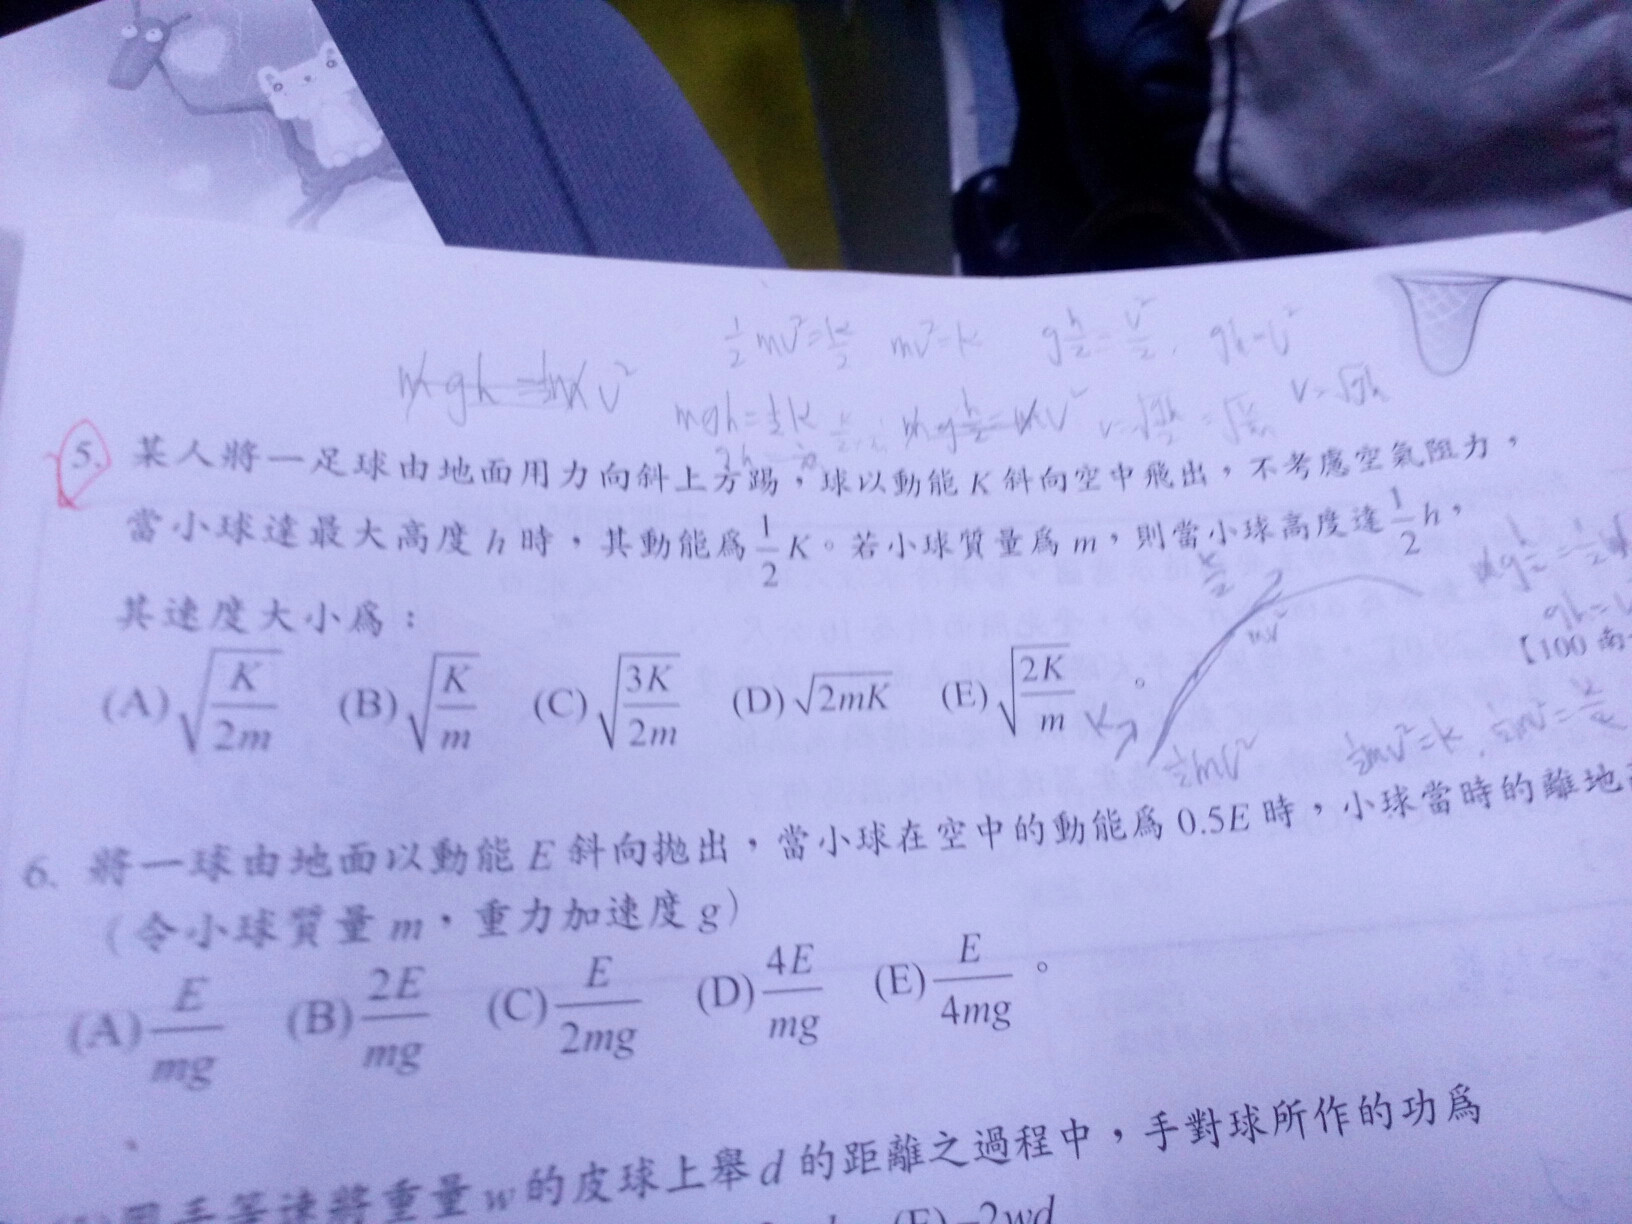 ½mv²=k/2 mv²=k g h/2 = v²/2, gh=v²
mgh=½mv²
mgh=½k v=√gh
5. 某人將一足球由地面用力向斜上方踢，球以動能 K 斜向空中飛出，不考慮空氣阻力，
當小球達最大高度 h 時，其動能爲 1/2 K。若小球質量爲 m，則當小球高度達 1/2 h，
其速度大小爲：
【100 南
(A) √(K/2m) (B) √(K/m) (C) √(3K/2m) (D) √2mK (E) √(2K/m) 。
K
½mv² ½mv²=k, ½mv²=k/2
6. 將一球由地面以動能 E 斜向拋出，當小球在空中的動能爲 0.5E 時，小球當時的離地
（令小球質量 m，重力加速度 g）
(A) E/mg (B) 2E/mg (C) E/2mg (D) 4E/mg (E) E/4mg 。
用手等速將重量 w 的皮球上舉 d 的距離之過程中，手對球所作的功爲
(E) −2wd